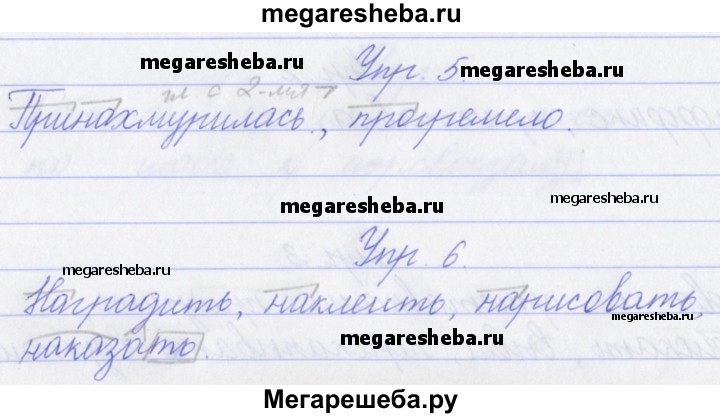 megaresheba.ru
megaresheba.ru Упр. 5. megaresheba.ru
гл. с 2-мя
Принахмурилась, прогремело.
megaresheba.ru
Упр. 6.
megaresheba.ru
Наградить, наклеить, нарисовать,
megaresheba.ru
наказать. megaresheba.ru
Мегарешеба.ру